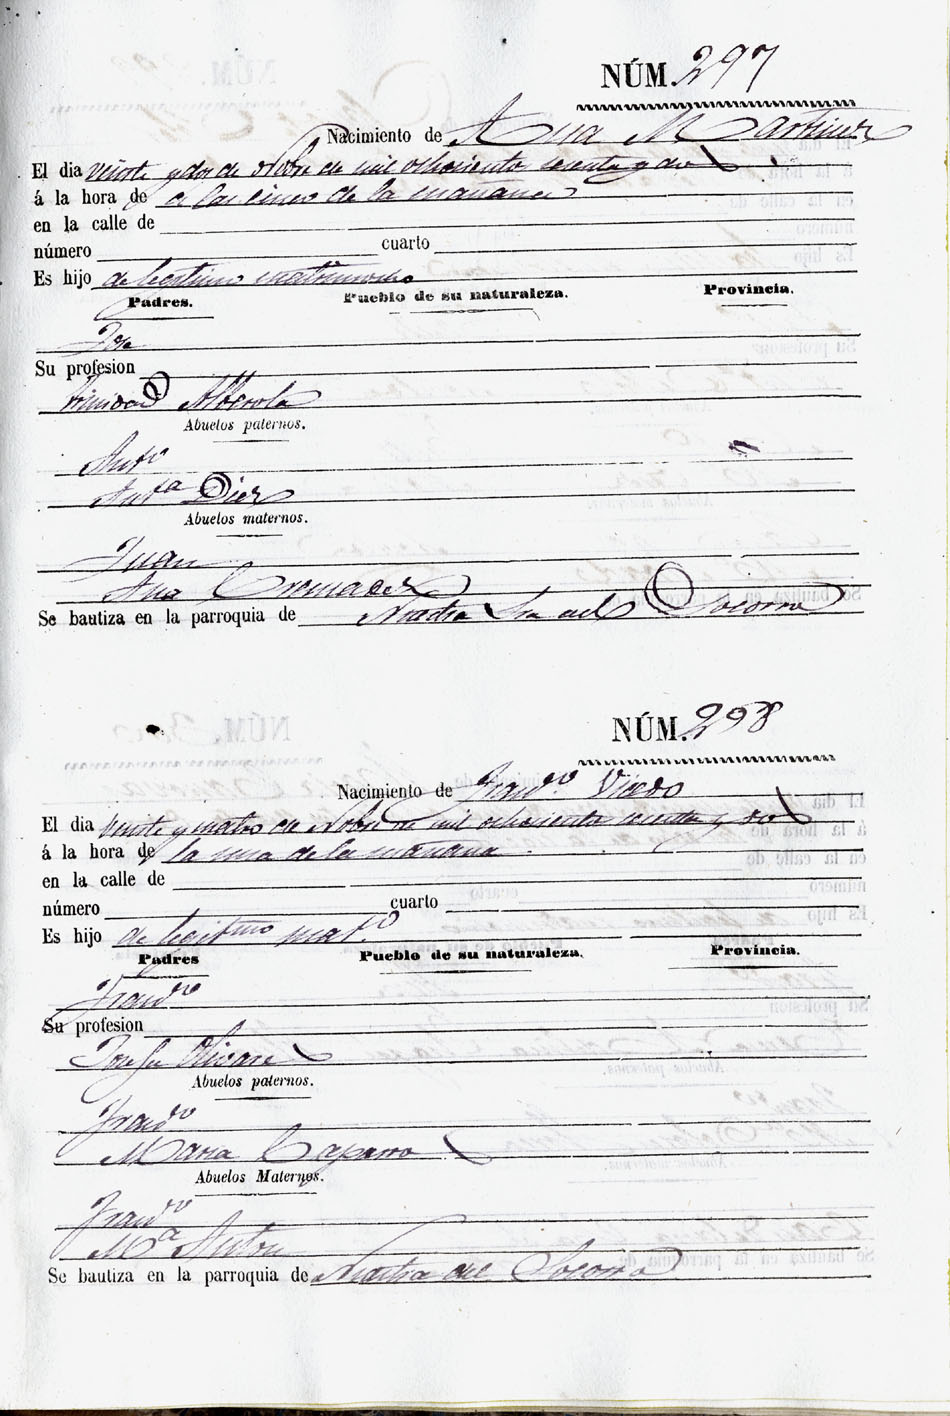 NÚM. 297
Nacimiento de Ana Martinez
El dia veinte y dos de Nobre de mil ochociento secenta y dos
á la hora de a las cinco de la mañana
en la calle de
número cuarto
Es hijo de legitimo matrimonio
Padres. Pueblo de su naturaleza. Provincia.
Jose
Su profesion
Trinidad Alberola
Abuelos paternos.
Anto
Anta Diez
Abuelos maternos.
Juan
Ana
Se bautiza en la parroquia de Nuestra Sra del Socorro
NÚM. 298
Nacimiento de Franco
El dia veinte y cuatro de Nobre de mil ochociento secenta y dos
á la hora de la una de la mañana
en la calle de
número cuarto
Es hijo de legitimo mato
Padres Pueblo de su naturaleza. Provincia.
Franco
Su profesion
Josefa Olivare
Abuelos paternos.
Franco
Maria Caparro
Abuelos Maternos.
Franco
Ma Anton
Se bautiza en la parroquia de Nuestra del Socorro